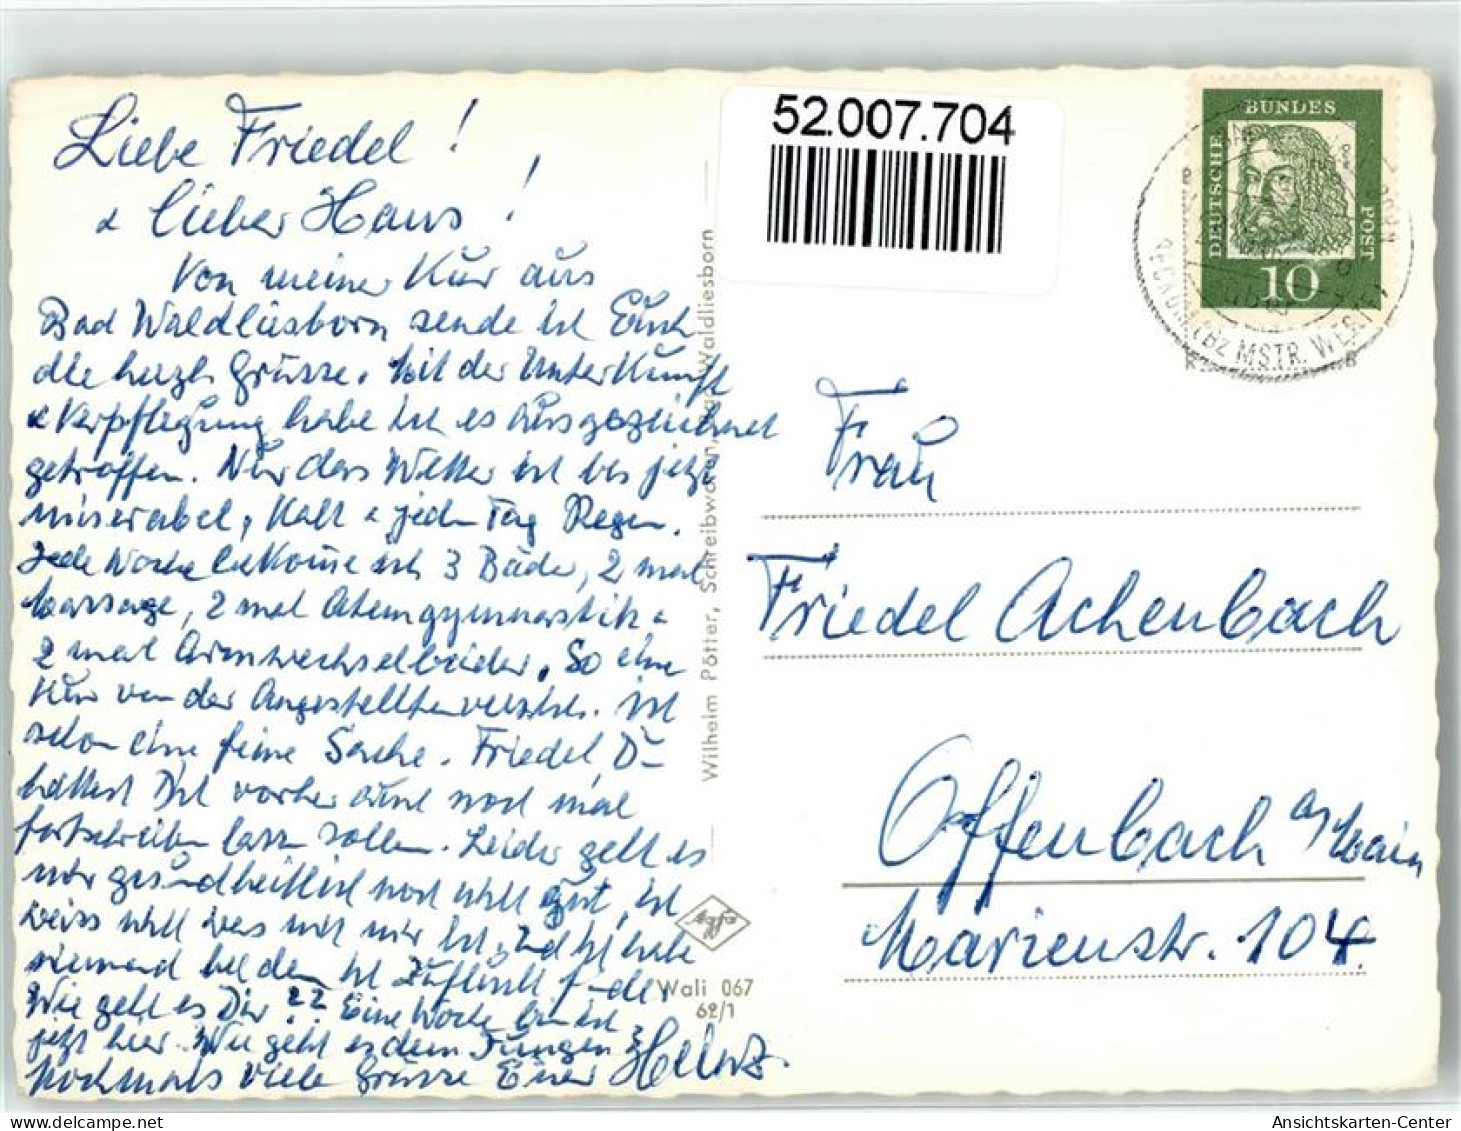 Liebe Friedel!
& lieber Hans!
Von meiner Kur aus
Bad Waldliesborn sende ich Euch
die herzl. Grüsse. Mit der Unterkunft
& Verpflegung habe ich es ausgezeichnet
getroffen. Nur das Wetter ist bis jetzt
miserabel, kalt & jeden Tag Regen.
Jede Woche bekomme ich 3 Bäder, 2 mal
Massage, 2 mal Atemgymnastik &
2 mal Armwechselbäder. So eine
Kur von der Angestelltenversich. ist
schon eine feine Sache. Friedel, Du
hättest Dich vorher auch noch mal
fortschreiben lassen sollen. Leider geht es
mir gesundheitlich noch nicht gut, ich
weiss nicht was mit mir ist, und ich habe
niemand bei dem ich Zuflucht finde.
Wie geht es Dir?? Eine Woche bin ich
jetzt hier. Wie geht es dem Jungen?
Nochmals viele Grüsse Euer Heinz.
Wilhelm Pötter, Schreibwaren, Bad Waldliesborn
Agfa
Wali 067
62/1
52.007.704
DEUTSCHE
BUNDES
POST
10
MSTR. WESTF
Frau
Friedel Achenbach
Offenbach a/Main
Marienstr. 104
Ansichtskarten-Center